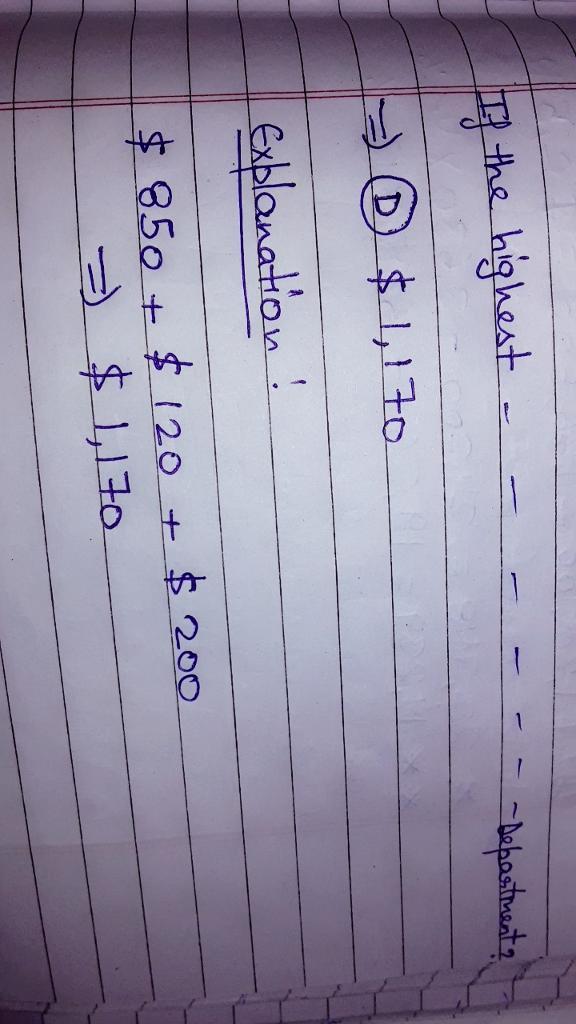 If the highest - - - - - - - Department?
=) (D) $ 1,170
Explanation :
$ 850 + $ 120 + $ 200
=) $ 1,170